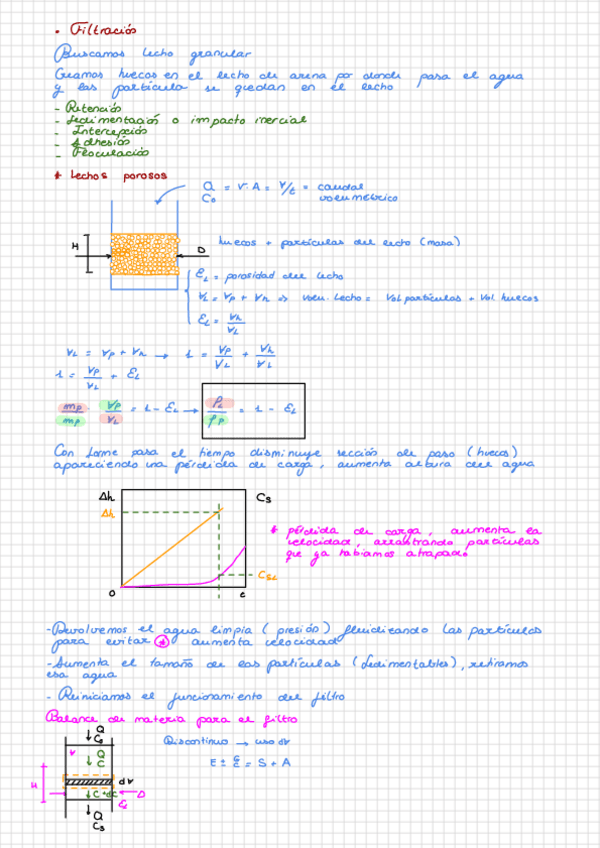 • Filtración
Buscamos lecho granular
Creamos huecos en el lecho de arena por donde pasa el agua
y las partícula se quedan en el lecho
- Retención
- Sedimentación o impacto inercial
- Intercepción
- Adhesión
- Floculación
* Lechos porosos
Q = v · A = V/t = caudal
C₀ volumétrico
H D
huecos + partículas del lecho (masa)
ε_L = porosidad del lecho
V_L = V_p + V_h ⇒ Volu. Lecho = Vol partículas + Vol huecos
ε_L = V_h / V_L
V_L = V_p + V_h → 1 = V_p / V_L + V_h / V_L
1 = V_p / V_L + ε_L
m_p / m_p · V_p / V_L = 1 - ε_L → ρ_L / ρ_p = 1 - ε_L
Con forme pasa el tiempo disminuye sección de paso (huecos)
apareciendo una pérdida de carga, aumenta altura del agua
Δh C_s
Δh
* pérdida de carga, aumenta la
velocidad, arrastrando partículas
que ya habiamos atrapado
C_sL
0 t
- Devolvemos el agua limpia (presión) fluidizando las partículas
para evitar * aumenta velocidad
- Aumenta el tamaño de las partículas (sedimentables), retiramos
esa agua
- Reiniciamos el funcionamiento del filtro
Balance de materia para el filtro
Q
C₀
Discontinuo → uso dV
v Q
C
E ± G/C = S + A
H dV
C + dC D
ε_L
Q
C_s